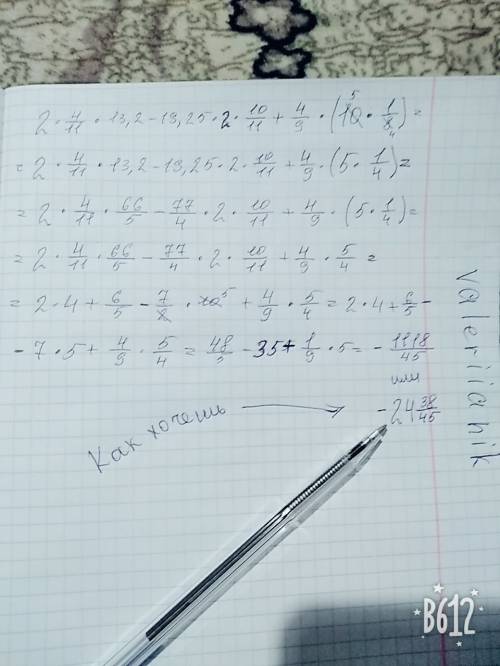 2 · 4/11 · 13,2 - 19,25 · 2 · 10/11 + 4/9 · (10 5 · 1/8 4) =
= 2 · 4/11 · 13,2 - 19,25 · 2 · 10/11 + 4/9 · (5 · 1/4) =
= 2 · 4/11 · 66/5 - 77/4 · 2 · 10/11 + 4/9 · (5 · 1/4) =
= 2 · 4/11 · 66/5 - 77/4 · 2 · 10/11 + 4/9 · 5/4 =
= 2 · 4 + 6/5 - 7/2 · 10 5 + 4/9 · 5/4 = 2 · 4 + 6/5 -
- 7 · 5 + 4/9 · 5/4 = 48/5 - 35 + 1/9 · 5 = - 1118/45
или
Как хочешь → - 24 38/45
Valeriianik
B612